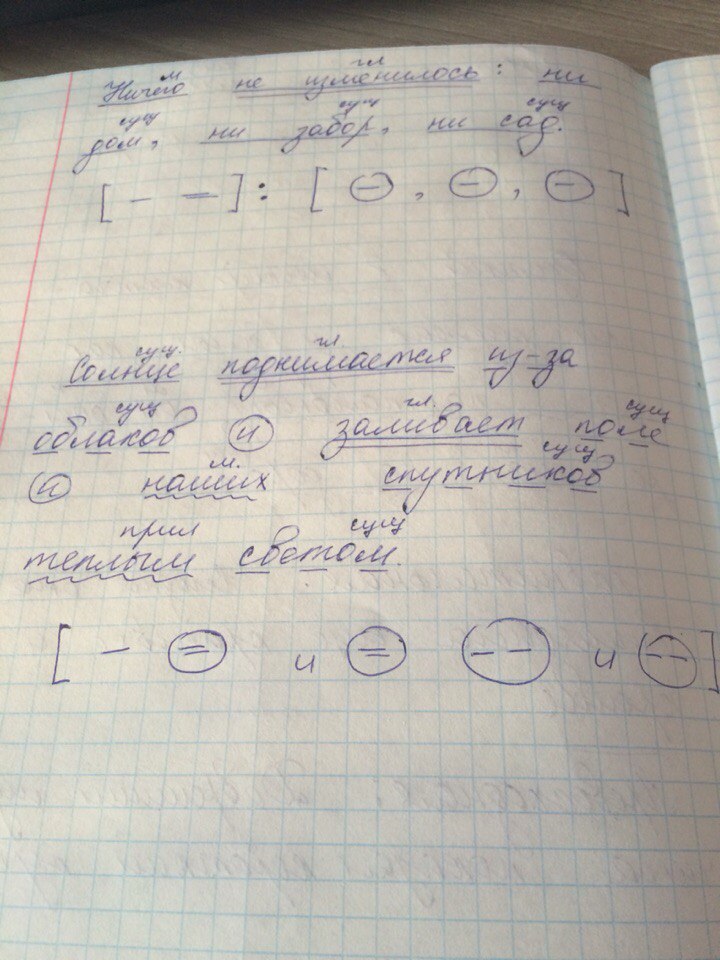 м гл
Ничего не изменилось: ни
сущ сущ сущ
дом, ни забор, ни сад.
[ - = ] : [ - , - , - ]
сущ. гл
Солнце поднимается из-за
сущ гл. сущ
облаков и заливает поле
м. сущ
и наших спутников
прил сущ
теплым светом.
[ - = и = -- и -- ]